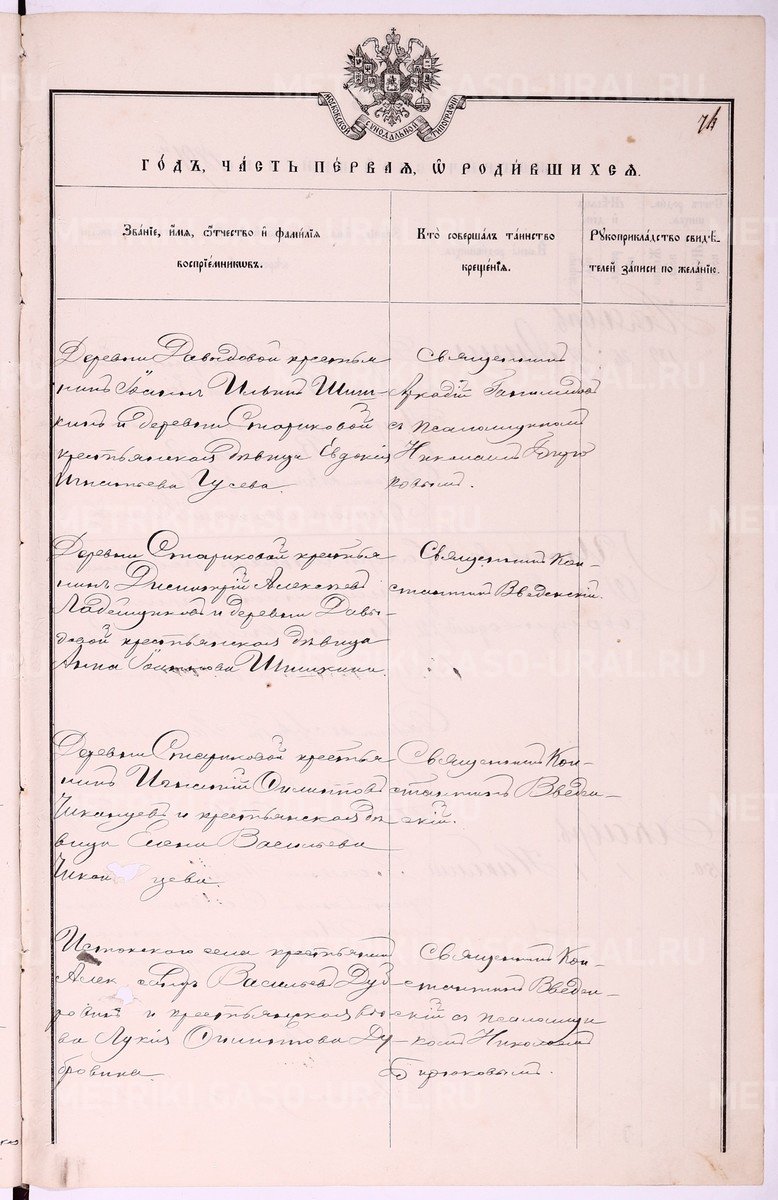 МОСКОВСКОЙ СѴНОДАЛЬНОЙ ТИПОГРАФІИ
74
ГОДЪ, ЧАСТЬ ПЕРВАЯ, Ѽ РОДИВШИХСЯ.
Званіе, имя, ѻтчество и фамилія
воспріемниковъ.
Кто совершалъ таинство
крещенія.
Рукоприкладство свидѣ-
телей записи по желанію.
Деревни Давыдовой крестья
нинъ Іоаннъ Ильинъ Шиш-
кинъ и деревни Стариковой
крестьянская дѣвица Евдокія
Игнатьева Гусева.
Священникъ
Аркадій
съ псаломщикомъ
Николаемъ Бирю
ковымъ.
Деревни Стариковой крестья
нинъ Димитрій Алексѣевъ
Ладейщиковъ и деревни Давы-
довой крестьянская дѣвица
Анна Іоаннова Шишкина.
Священникъ Кон-
стантинъ Введенскій.
Деревни Стариковой крестья
нинъ Игнатій Филипповъ
Чиканцевъ и крестьянская дѣ
вица Елена Васильева
Чикан цева.
Священникъ Кон-
стантинъ Введен-
скій.
Истокского села крестьянинъ
Алек сандръ Васильевъ Дуб-
ровинъ и крестьянская вдо
ва Лукія Филиппова Ду-
бровина.
Священникъ Кон-
стантинъ Введен-
скій съ псаломщи
комъ Николаемъ
Бирюковымъ.
METRIKI.GASO-URAL.RU